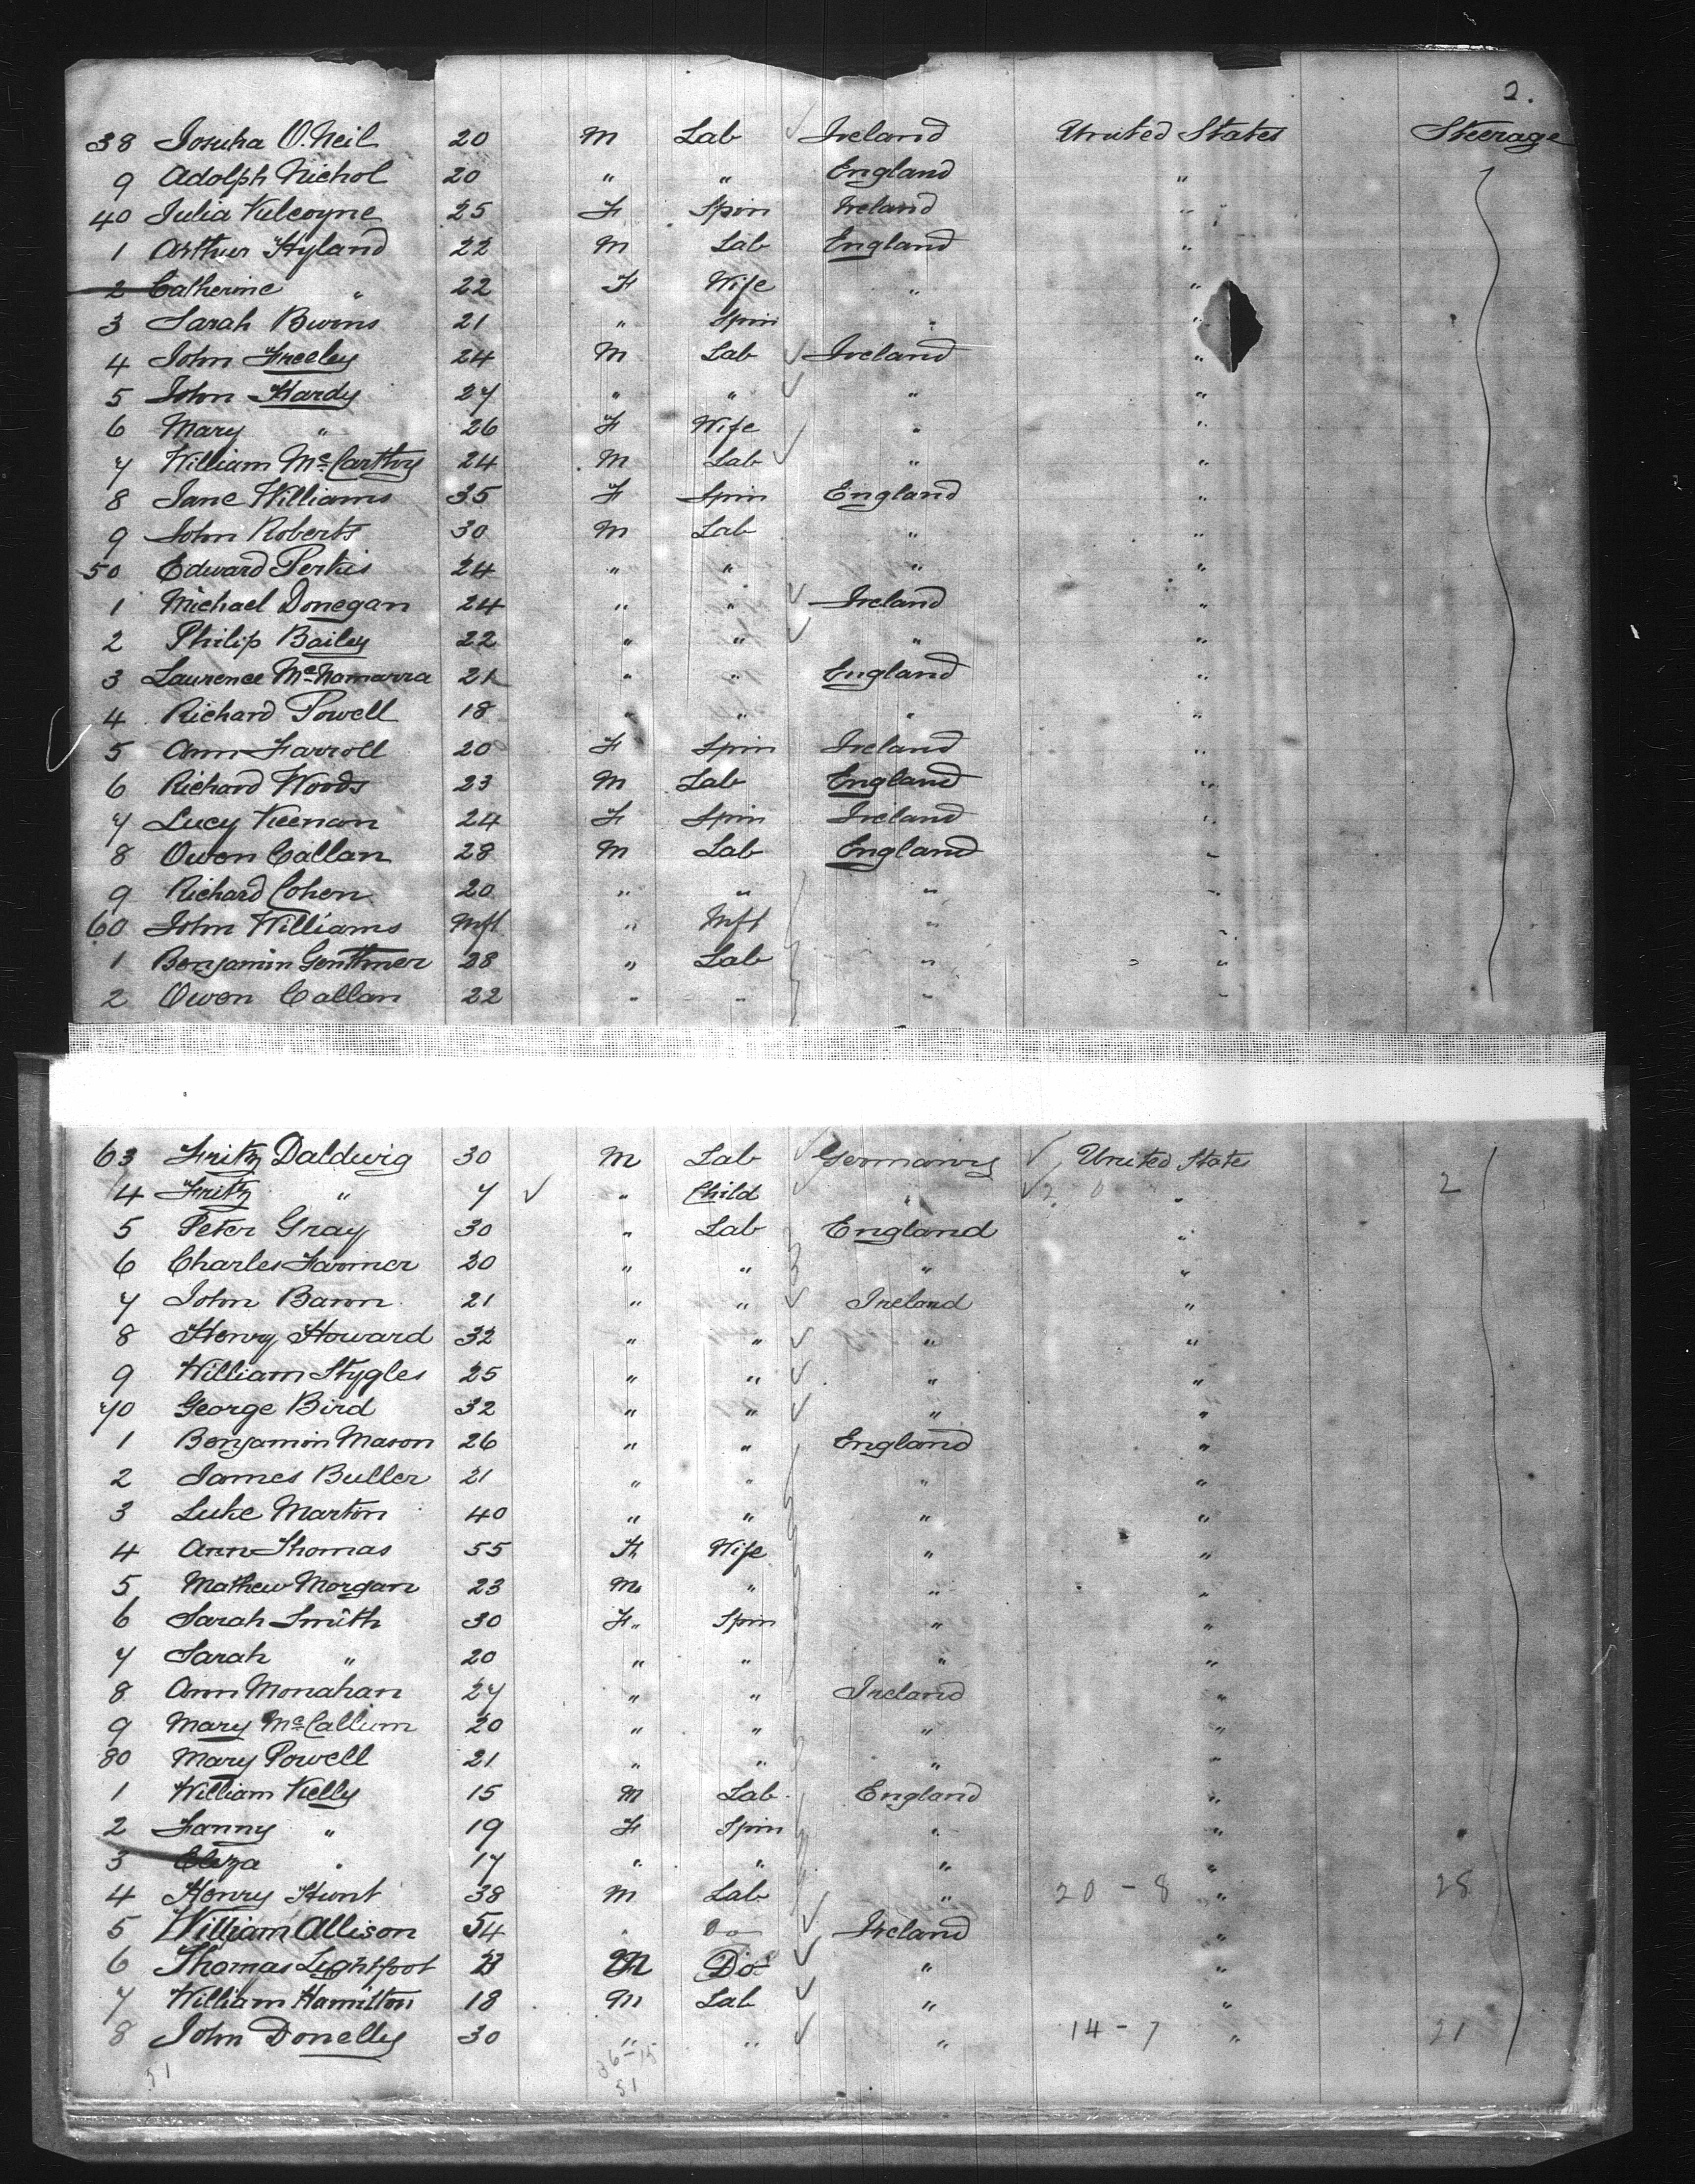 2.
38 Josuha O.Neil 20 M Lab Ireland United States Steerage
9 Adolph Nichol 20 " " England "
40 Julia Kilcoyne 25 F Spin Ireland "
1 Arthur Hyland 22 M Lab England "
2 Catherine " 22 F Wife " "
3 Sarah Burns 21 " Spin " "
4 John Freeley 24 M Lab Ireland "
5 John Hardy 27 " " " "
6 Mary " 26 F Wife " "
7 William McCarthy 24 M Lab " "
8 Jane Williams 35 F Spin England "
9 John Roberts 30 M Lab " "
50 Edward Perkis 24 " " " "
1 Michael Donegan 24 " " Ireland "
2 Philip Bailey 22 " " " "
3 Laurence McNamarra 21 " " England "
4 Richard Powell 18 " " " "
5 Ann Farroll 20 F Spin Ireland "
6 Richard Woods 23 M Lab England "
7 Lucy Keenan 24 F Spin Ireland "
8 Owen Callan 28 M Lab England "
9 Richard Cohen 20 " " " "
60 John Williams Mft " Mft " "
1 Benjamin Genthner 28 " Lab " "
2 Owen Callan 22 " " " "
63 Fritz Daldwig 30 M Lab Germany United States
4 Fritz " 7 " Child " " 2
5 Peter Gray 30 " Lab England "
6 Charles Farmer 20 " " " "
7 John Baron 21 " " Ireland "
8 Henry Howard 32 " " " "
9 William Stygles 25 " " " "
70 George Bird 32 " " " "
1 Benjamin Mason 26 " " England "
2 James Buller 21 " " " "
3 Luke Martin 40 " " " "
4 Ann Thomas 55 F Wife " "
5 Mathew Morgan 23 M " " "
6 Sarah Smith 30 F Spin " "
7 Sarah " 20 " " " "
8 Ann Monahan 27 " " Ireland "
9 Mary McCallum 20 " " " "
80 Mary Powell 21 " " " "
1 William Kelly 15 M Lab England "
2 Fanny " 19 F Spin " "
3 Eliza " 17 " " " "
4 Henry Hunt 38 M Lab " 20 - 8 " 28
5 William Allison 54 " Do Ireland "
6 Thomas Lightfoot M Do " "
7 William Hamilton 18 M Lab " "
8 John Donelly 30 " " " 14 - 7 " 21
51 36 - 15
51